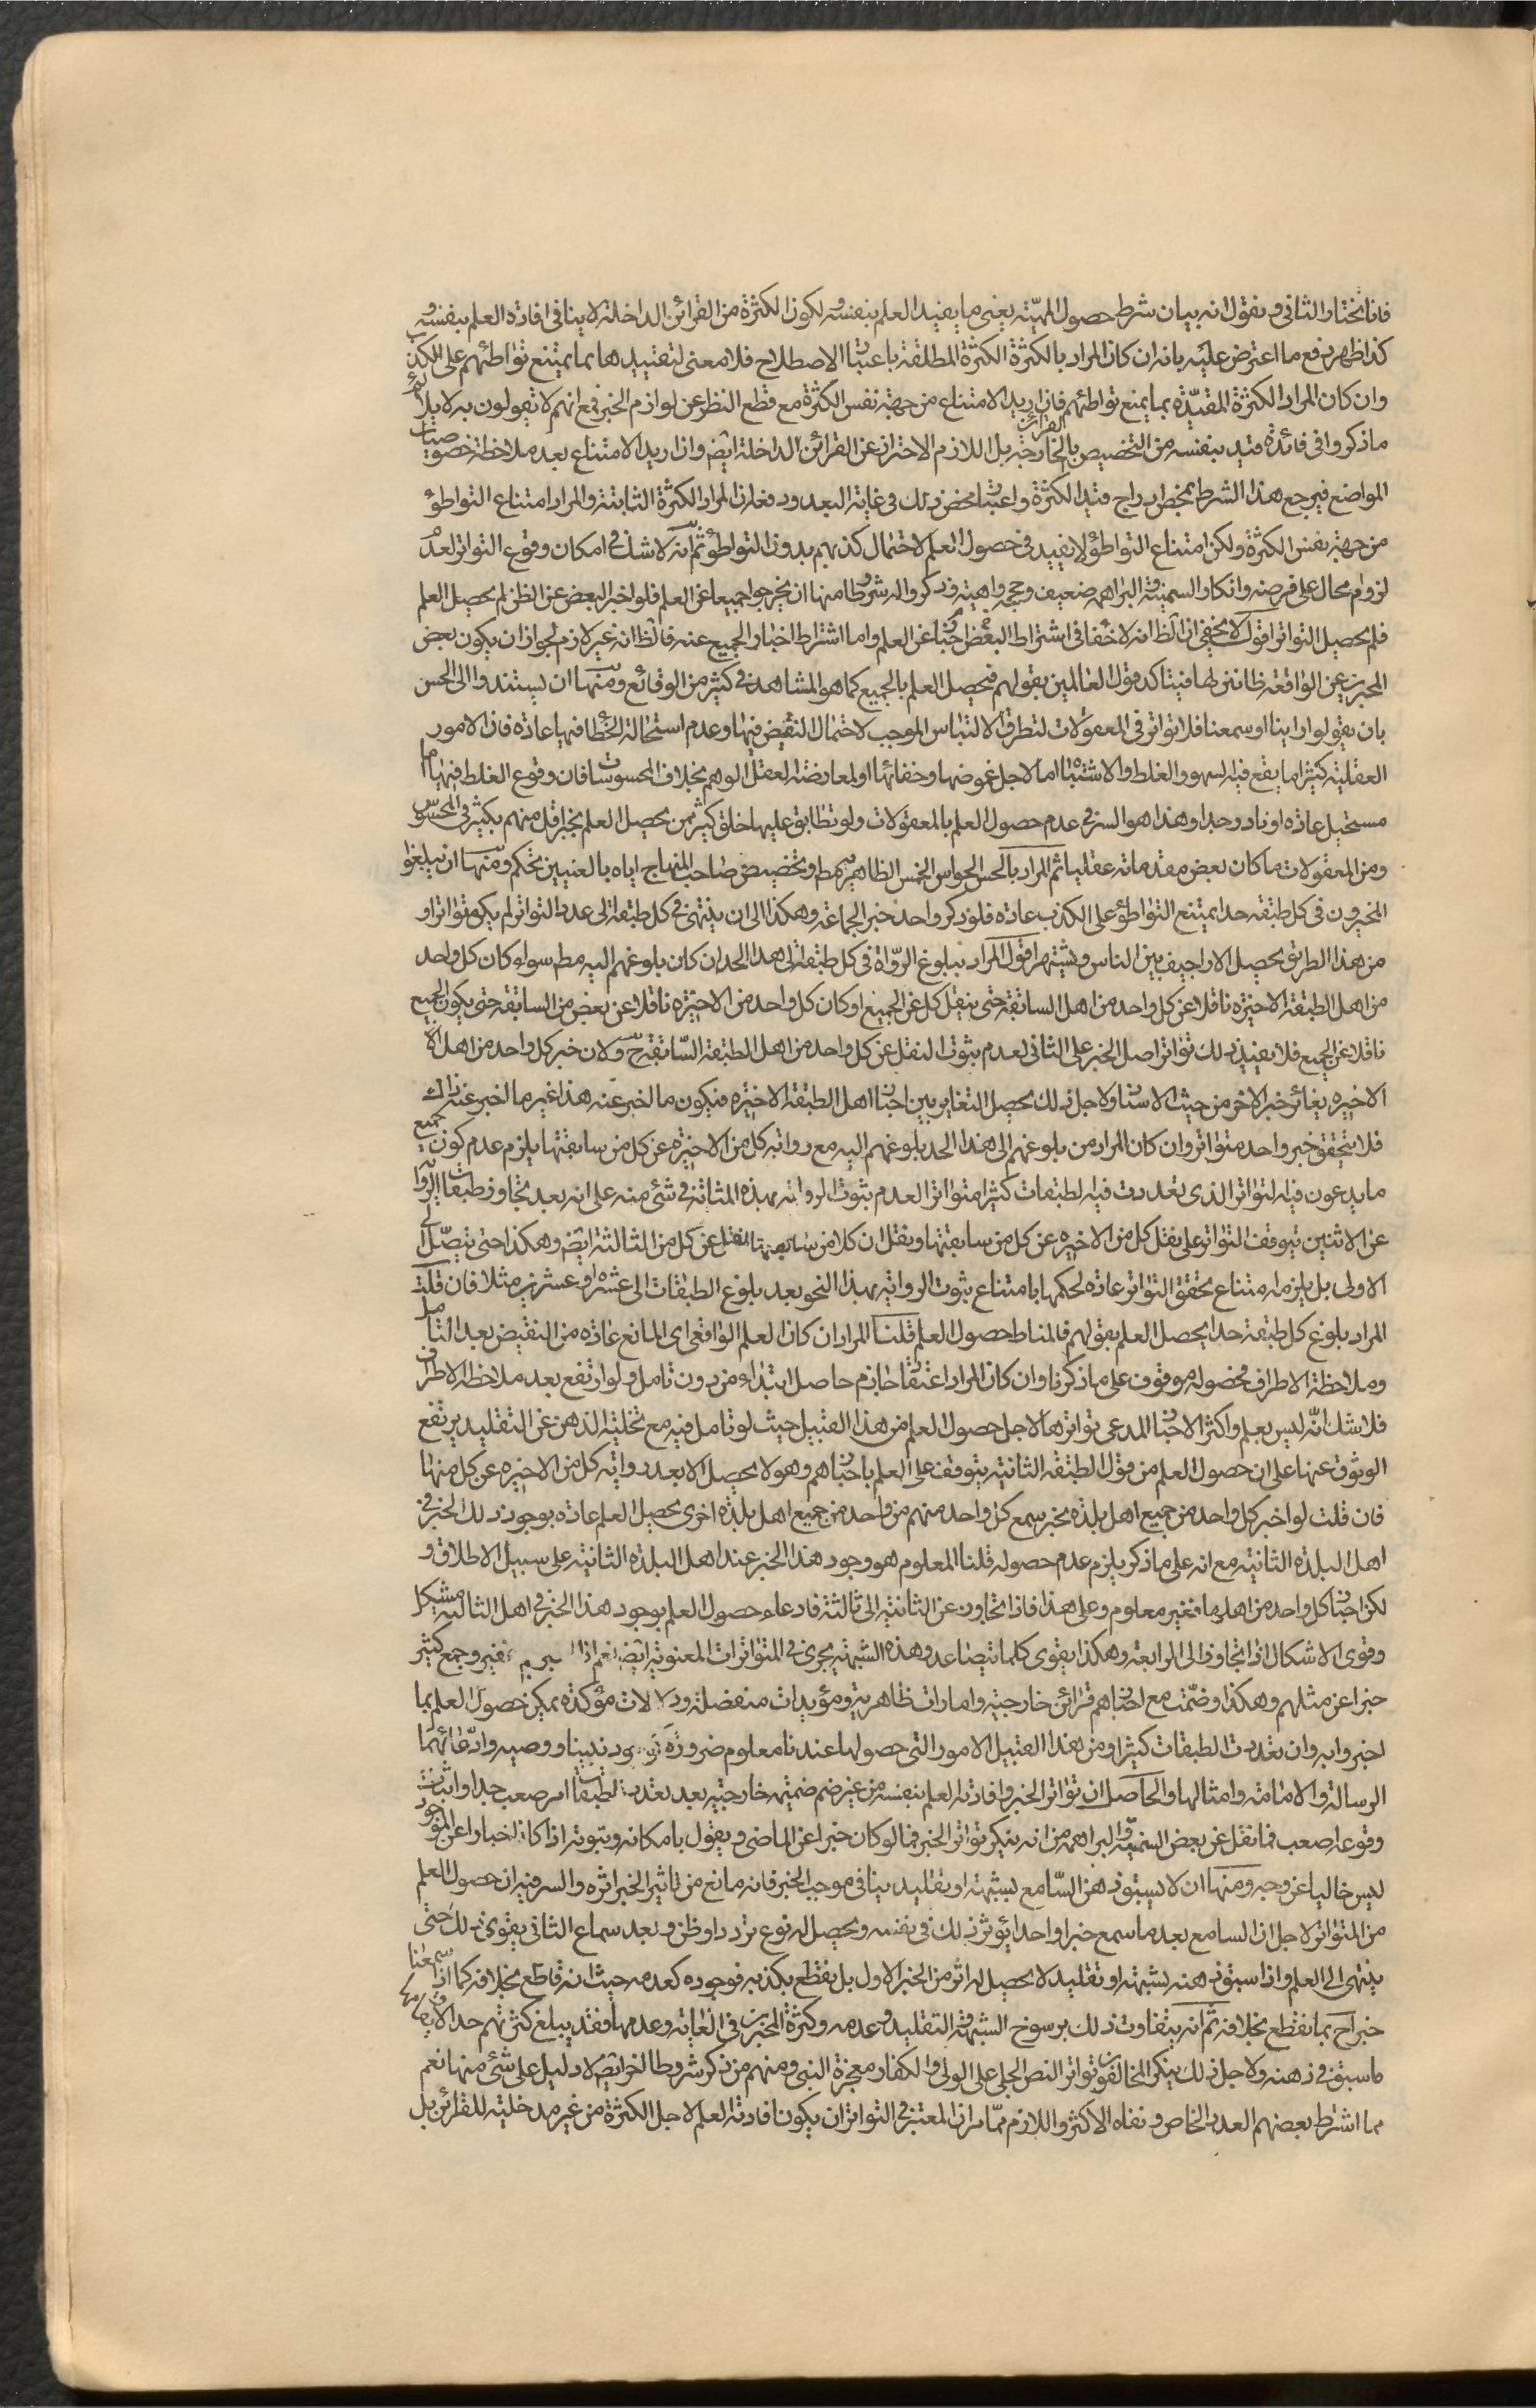 فانا نختار الثانى و نقول انه بيان شرط حصول المهيّته يعنى ما يفيد العلم بنفسه و لكون الكثرة من القرائن الداخلة لا ينافى افادة العلم بنفسه و
كذا ظهر دفع ما اعترض عليه بانه ان كان المراد بالكثرة الكثرة المطلقة باعتبار الاصطلاح فلا معنى لتقييدها بما يمتنع تواطئهم على الكذب
وان كان المراد الكثرة المقيّدة بما يمنع تواطئهم فان اريد الامتناع من جهة نفس الكثرة مع قطع النظر عن لوازم الخبر فمع انهم لا يقولون به لا يلائم
ما ذكروا فى فائدة قيد بنفسه من التخصيص بالقرائن الخارجة بل اللازم الاحتراز عن القرائن الداخلة ايضا وان اريد الامتناع بعد ملاحظة خصوصيات
المواضع فيرجع هذا الشرط بمحض ادراج قيد الكثرة و اعتبار محض ذلك فى غاية البعد و دفع ان المراد الكثرة الثابتة والمراد امتناع التواطؤ
من جهة نفس الكثرة ولكن امتناع التواطؤ لا يفيد فى حصول العلم لاحتمال كذبهم بدون التواطؤ ثم انه لا شك فى امكان وقوع التواتر لعدم
لزوم محال على فرضه وانكار السمنية و البراهمه ضعيف وحججه واهية و ذكروا له شروطا منها ان يخبروا جميعا عن العلم فلو اخبر البعض عن الظن لم يحصل العلم
فلم يحصل التواتر اقول لا يخفى ان الظ انه لا خفا فى اشتراط البعض اخبارا عن العلم واما اشتراط اخبار الجميع عنه فالظ انه غير لازم لجواز ان يكون بعض
المخبرين عن الواقعة ظانين لها فيتاكد قول العالمين بقولهم فيحصل العلم بالجميع كما هو المشاهد فى كثير من الوقائع ومنها ان يستندوا الى الحس
بان يقولوا راينا او سمعنا فلا تواتر فى المعقولات لتطرق الالتباس الموجب لاحتمال النقيض فيها و عدم استحالة الخطا فيها عادة فان الامور
العقلية كثيرا ما يقع فيه لسهو والغلط والاشتباه اما لاجل غموضها وخفائها او لمعارضة العقل الوهم بخلاف المحسوسات فان وقوع الغلط فيها اما
مستحيل عادة او نادر جدا وهذا هو السر فى عدم حصول العلم بالمعقولات ولو تطابق عليها خلق كثير ممن يحصل العلم بخبر اقل منهم بكثير فى المحسوس
ومن المعقولات ما كان بعض مقدماته عقليا ثم المراد بالحس الحواس الخمس الظاهره مط وتخصيص صاحب المنهاج اياه بالعينيين تحكم ومنها ان يبلغوا
المخبرون فى كل طبقه حدا يمتنع التواطؤ على الكذب عادة فلو ذكر واحد خبر الجماعة وهكذا الى ان ينتهى فى كل طبقة الى عدد التواتر لم يكن متواترا و
من هذا الطريق يحصل الاراجيف بين الناس ويشتهر اقول المراد ببلوغ الرواة فى كل طبقة الى هذا الحد ان كان بلوغهم اليه مط سواء كان كل واحد
من اهل الطبقة الاخيرة ناقلا عن كل واحد من اهل السابقة حتى ينقل كل عن الجميع او كان كل واحد من الاخيرة ناقلا عن بعض من السابقة حتى يكون الجميع
ناقلا عن الجميع فلا يفيد ذلك تواتر اصل الخبر على الثانى لعدم ثبوت النقل عن كل واحد من اهل الطبقة السّابقة ح ولان خبر كل واحد من اهل الا
الاخيره يغائر خبر الاخر من حيث الاسناد ولاجل ذلك يحصل التغاير بين اخبار اهل الطبقة الاخيره فيكون ما اخبر عنه هذا غير ما اخبر عنه ذاك
فلا يتحقق خبر واحد متواتر وان كان المراد من بلوغهم الى هذا الحد بلوغهم اليه مع رواية كل من الاخيرة عن كل من سابقتها يلزم عدم كون جميع
ما يدعون فيه لتواتر الذى تعددت فيه لطبقات كثيرا متواترا لعدم ثبوت الرواية بهذه المثابة فى شئ منه على انه بعد تجاوز طبقات الرواة
عن الاثنين يتوقف التواتر على نقل كل من الاخيره عن كل من سابقتها ونقل ان كلا من سابقتها نقل عن كل من الثالثة ايضا وهكذا حتى يتصل الى
الاولى بل يلزم امتناع تحقق التواتر عادة لحكمها بامتناع ثبوت الرواية بهذا النحو بعد بلوغ الطبقات الى عشره او عشرين مثلا فان قلت
المراد بلوغ كل طبقة حدا يحصل العلم بقولهم فالمناط حصول العلم قلنا المراد ان كان العلم الواقعى اى المانع عادة من النقيض بعد التامل
وملاحظة الاطراف فحصوله موقوف على ما ذكرنا وان كان المراد اعتقاد جازم حاصل ابتداء من دون تامل ولو ارتفع بعد ملاحظة الاطراف
فلا شك انّه ليس بعلم واكثر الاخبار المدعى تواترها لاجل حصول العلم من هذا القبيل حيث لو تامل فيه مع تخلية الذهن عن التقليد يرتفع
الوثوق عنها على ان حصول العلم من قول الطبقة الثانية يتوقف على العلم باخبارهم وهو لا يحصل الا بعد رواية كل من الاخيره عن كل منها
فان قلت لو اخبر كل واحد من جميع اهل بلدة بخبر سمع كل واحد منهم من واحد من جميع اهل بلدة اخرى يحصل العلم عادة بوجود ذلك الخبر فى
اهل البلدة الثانية مع انه على ما ذكر يلزم عدم حصوله قلنا المعلوم هو وجود هذا الخبر عند اهل البلدة الثانية على سبيل الاطلاق و
لكن اخبار كل واحد من اهلها فغير معلوم وعلى هذا فاذا تجاوز عن الثانية الى ثالثة فادعاء حصول العلم بوجود هذا الخبر فى اهل الثالثة مشكل
وقوى الاشكال اذا تجاوز الى الرابعة وهكذا يقوى كلما يتصاعد وهذه الشبهة يجرى فى المتواترات المعنوية ايضا نعم اذا غفير وجمع كثير
خبرا عن مثلهم وهكذا وضمّت مع اخبارهم قرائن خارجية وامارات ظاهرية ومؤيدات منفصلة ودلالات مؤكدة يمكن حصول العلم بما
اخبروا به وان تعددت الطبقات كثيرا ومن هذا القبيل الامور التى حصولها عندنا معلوم ضرورة وجود نبينا ووصيه وادّعائهما
الرسالة والامامة وامثالها والحاصل ان تواتر الخبر وافادته العلم بنفسه من غير ضم ضميمة خارجية بعد تعدد الطبقات امر صعب جدا واثبات
وقوعه اصعب فما نقل عن بعض السمنية و البراهمه من انه ينكر تواتر الخبر فيما لو كان خبرا عن الماضى ويقول بامكانه وثبوته اذا كان اخبارا عن الموجود
ليس خاليا عن وجه ومنها ان لا يسبق ذهن السّامع بشبهة او تقليد ينافى موجب الخبر فانه مانع من تاثير الخبر اثره والسر فيه ان حصول العلم
من المتواتر لاجل ان السامع بعد ما سمع خبرا واحدا يؤثر ذلك فى نفسه ويحصل له نوع تردد او ظن و بعد سماع الثانى يقوى ذلك حتى
ينتهى الى العلم واذا سبق ذهنه بشبهة او تقليد لا يحصل له اثر من الخبر الاول بل يقطع بكذبه فوجوده كعدمه حيث انه قاطع بخلافه كما اذا سمعنا
خبرا ح بما نقطع بخلافه ثم انه يتفاوت ذلك برسوخ الشبهة و التقليد و عدمه وكثرة المخبرين فى الغاية وعدمها فقد يبلغ كثرتهم حدا لا يقاومها
ما سبق فى ذهنه ولاجل ذلك ينكر المخالفون تواتر النص الجلى على الولى والكفار معجزة النبى ومنهم من ذكر شروطا اخر ايضا لا دليل على شئ منها نعم
مما اشترط بعضهم العدد الخاص و نفاه الاكثر واللازم ممّا مر ان المعتبر فى التواتر ان يكون افادته العلم لاجل الكثرة من غير مدخلية للقرائن بل